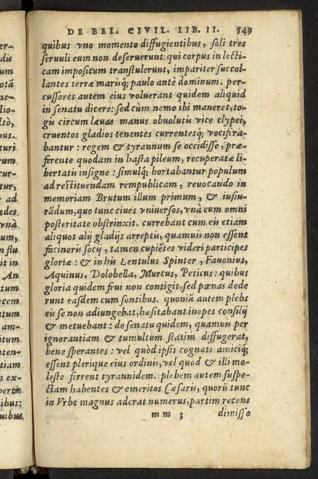 DE BEL. CIVIL. LIB. II. 549
quibus vno momento diffugientibus, soli tres
seruuli eum non deseruerunt: qui corpus in lecti
cam impositum transtulerunt, impariter succol
lantes terræ marisq́; paulo antè dominum. per-
cussores autem eius voluerant quidem aliquid
in senatu dicere: sed cùm nemo ibi maneret, to-
gis circum læuas manus obuolutis vice clypei,
cruentos gladios tenentes currentesq́; vocifera
bantur: regem & tyrannum se occidisse, præ-
ferente quodam in hasta pileum, recuperatæ li-
bertatis insigne: simulq́; hortabantur populum
ad restituendam rempublicam, reuocando in
memoriam Brutum illum primum, & iusiu-
rādum, quo tunc ciues vniuersos, vnà cum omni
posteritate obstrinxit. currebant cum eis etiam
aliquot alij gladijs arreptis, quamuis non essent
facinoris socij, tamen cupiētes videri participes
gloriæ: & in his Lentulus Spinter, Fauonius,
Aquinus, Dolobella, Murcus, Peticus: quibus
gloria quidem frui non contigit, sed pœnas dede
runt easdem cum sontibus. quoniā autem plebs
eis se non adiungebat, hæsitabant inopes consilij
& metuebant: de senatu quidem, quamuis per
ignorantiam & tumultum statim diffugerat,
bene sperantes: vel quòd ipsis cognati amiciq́;
essent plerique eius ordinis, vel quod & illi mo-
lestè ferrent tyrannidem. plebem autem suspe-
ctam habentes & emeritos Cæsaris, quorū tunc
in Vrbe magnus aderat numerus, partim recens
m m 3 dimisso